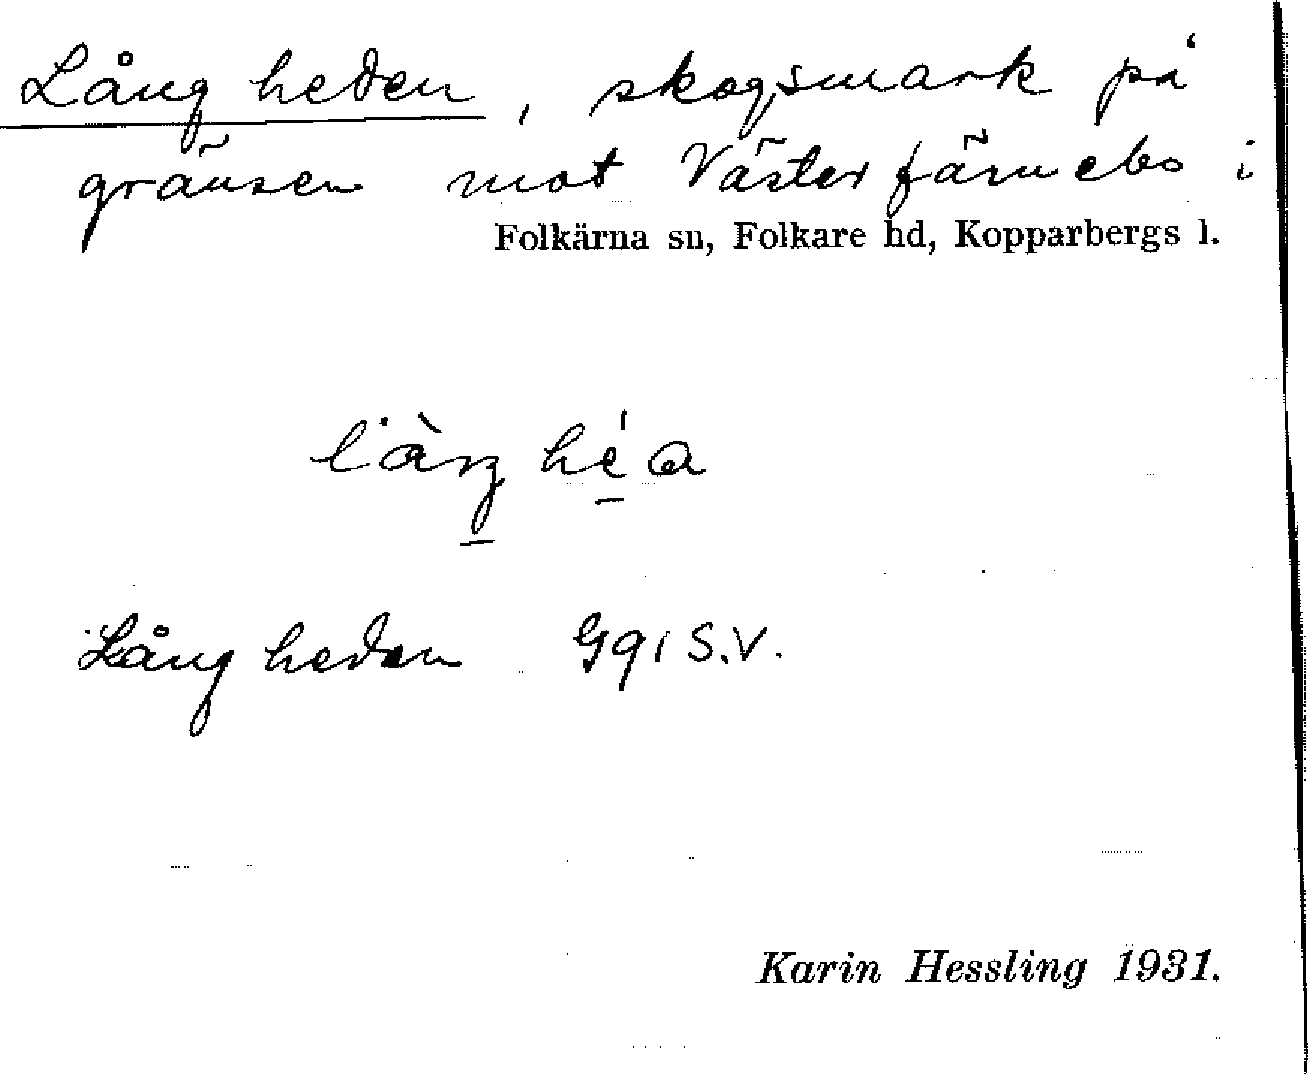 Långheden, skogsmark på
gränsen mot Västerfärnebo i
Folkärna sn, Folkare hd, Kopparbergs l.
Långheden Gg1 S.V.
Karin Hessling 1931.